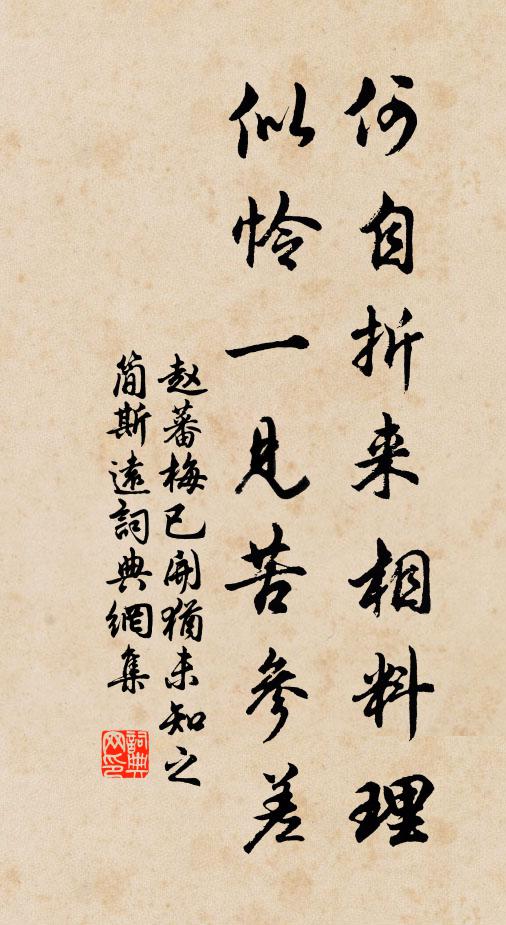 何自折来相料理
似怜一见苦参差
赵蕃梅已开犹未知之
简斯远詞典網集
詞典网印